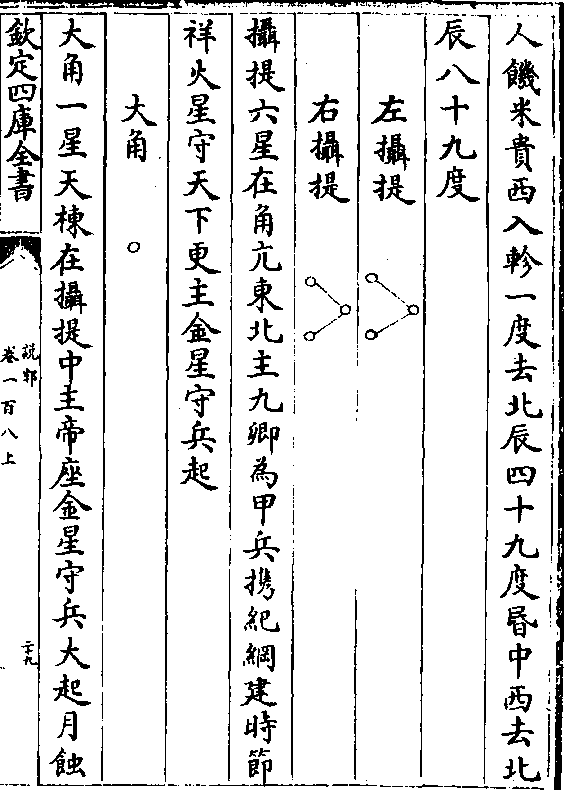 人饑米貴西入軫一度去北辰四十九度昬中西去北
辰八十九度
左攝提
右攝提
攝提六星在角亢東北主九卿為甲兵携紀綱建時節
祥火星守天下更主金星守兵起
大角
大角一星天棟在攝提中主帝座金星守兵大起月蝕
欽定四庫全書
說郛
卷一百八上
二十九